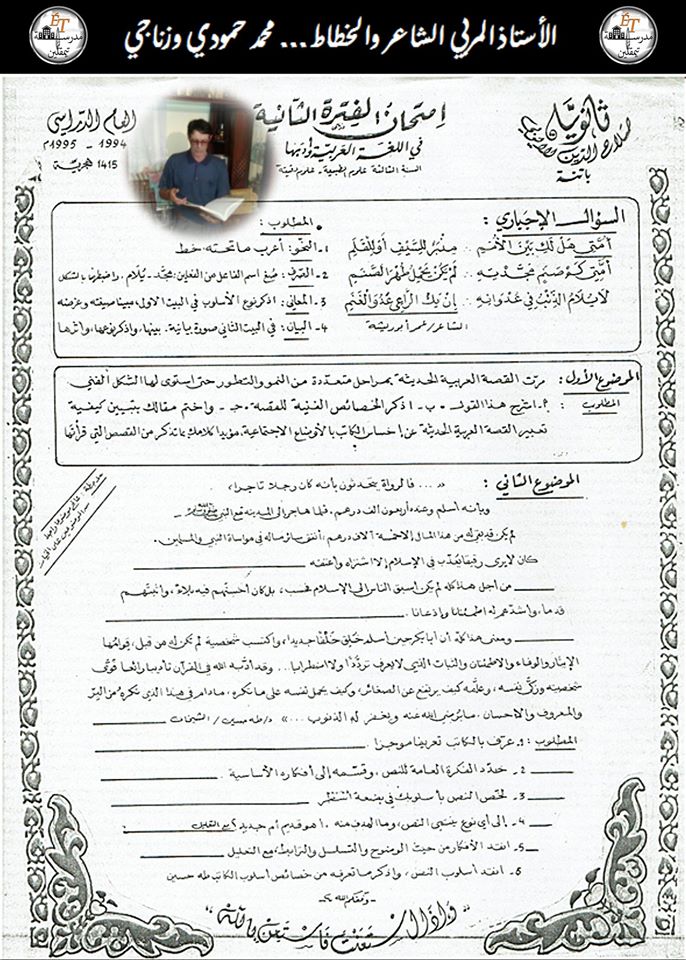 الأستاذ المربي الشاعر والخطاط... محمد حمودي وزناجي
ET
مدرسة
تيمقلين
ET
مدرسة
تيمقلين
ثانوية
صلاح الدين
باتنة
إمتحان الفترة الثانية
في اللغة العربية وأدبها
السنة الثالثة علوم الطبيعة - علوم دقيقة
العام الدراسي
1994 - 1995م
1415 هجرية
السؤال الإجباري :
أمتي هل لك بين الأمم ... منبر للسيف أو للقلم
أمتي كم صنم مجدته ... لم يكن يحمل طهر الصنم
لا يلام الذئب في عدوانه ... إن يك الراعي عدو الغنم
الشاعر/ عمر أبو ريشة
المطلوب :
1- النحو: أعرب ما تحته خط
2- الصرف: صغ اسم الفاعل من الفعلين: مجّد - يُلام. واضبطهما بالشكل
3- المعاني: اذكر نوع الأسلوب في البيت الأول، مبينا صيغته وغرضه
4- البيان: في البيت الثاني صورة بيانية. بينها، واذكر نوعها، وأثرها
الموضوع الأول : مرت القصة العربية الحديثة بمراحل متعددة من النمو والتطور حتى استوى لها الشكل الفني.
المطلوب : أ. اشرح هذا القول - ب - اذكر الخصائص الفنية للقصة. ج - واختم مقالك بتبيين كيفية
تعبير القصة العربية الحديثة عن إحساس الكاتب بالأوضاع الاجتماعية. مؤيدا كلامك بما تذكر من القصص التي قرأتها
الموضوع الثاني : «... فالرواة يتحدثون بأنه كان رجلا تاجرا،
وبأنه أسلم وعنده أربعون ألف درهم. فلما هاجر إلى المدينة مع النبي ﷺ -
لم يكن قد بقي له من هذا المال إلا خمسة آلاف درهم، أنفق سائر ماله في مواساة النبي والمسلمين.
كان لا يرى رقيقا يعذب في الإسلام إلا اشتراه وأعتقه
من أجل هذا كله لم يكن أسبق الناس إلى الإسلام فحسب، بل كان أحسنهم فيه بلاء، وأثبتهم
قدما، وأشدهم له اطمئنانا وإذعانا.
ومعنى هذا كله أن أبا بكر حين أسلم خلق خلقا جديدا، واكتسب شخصية لم تكن له من قبل، قوامها
الإيثار والوفاء والاطمئنان والثبات الذي لا يعرف ترددا ولا اضطرابا... وقد أدبه الله في القرآن تأديبا رائعا قوّى
شخصيته وزكى نفسه، وعلمه كيف يرتفع عن الصغائر، وكيف يحمل نفسه على ما تكره، ما دام في هذا الذي تكره من البر
والمعروف والإحسان، ما يرضي الله عنه ويغفر له الذنوب ...» د/طه حسين/ الشيخان
المطلوب : 1. عرف بالكاتب تعريفا موجزا.
2- حدد الفكرة العامة للنص، وقسمه إلى أفكاره الأساسية.
3- لخص النص بأسلوبك في بضعة أسطر
4- إلى أي نوع ينتمي النص، وما الهدف منه. أهو قديم أم جديد؟ مع التعليل
5- انقد الأفكار من حيث الوضوح والتسلسل والترابط، مع التعليل
6- انقد أسلوب النص، واذكر ما تعرفه من خصائص أسلوب الكاتب طه حسين
- وفقكم الله -
"وإذا استعنت فاستعن بالله"